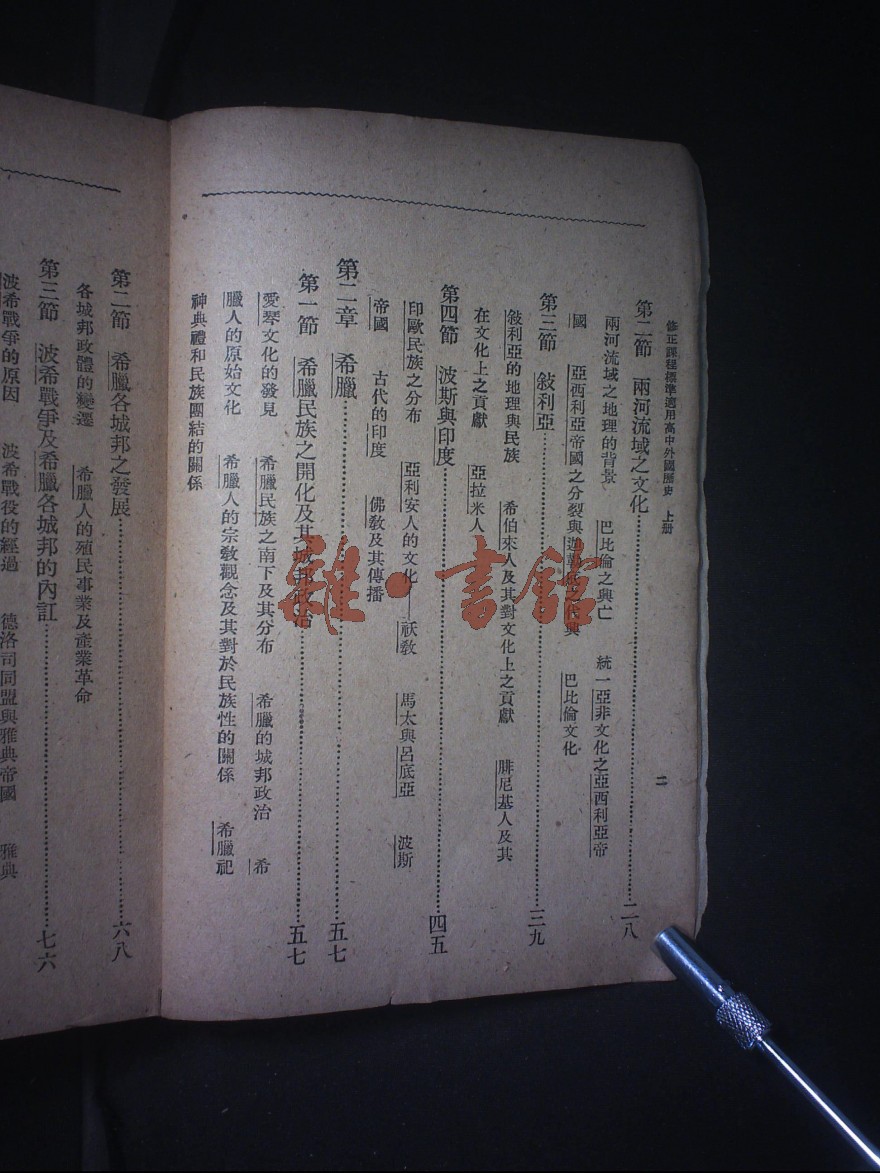 修正課程標準適用高中外國歷史 上册
二
第二節 兩河流域之文化…………二八
兩河流域之地理的背景 巴比倫之興亡 統一亞非文化之亞西利亞帝
國 亞西利亞帝國之分裂與迦勒底之代興 巴比倫文化
第三節 敍利亞…………三九
敍利亞的地理與民族 希伯來人及其對文化上之貢獻 腓尼基人及其
在文化上之貢獻 亞拉米人
第四節 波斯與印度…………四五
印歐民族之分布 亞利安人的文化——祆敎 馬太與呂底亞 波斯
帝國 古代的印度 佛敎及其傳播
第二章 希臘…………五七
第一節 希臘民族之開化及其城邦政治…………五七
愛琴文化的發見 希臘民族之南下及其分布 希臘的城邦政治 希
臘人的原始文化 希臘人的宗敎觀念及其對於民族性的關係 希臘祀
神典禮和民族團結的關係
第二節 希臘各城邦之發展…………六八
各城邦政體的變遷 希臘人的殖民事業及產業革命
第三節 波希戰爭及希臘各城邦的內訌…………七六
波希戰爭的原因 波希戰役的經過 德洛司同盟與雅典帝國 雅典
雜·書館